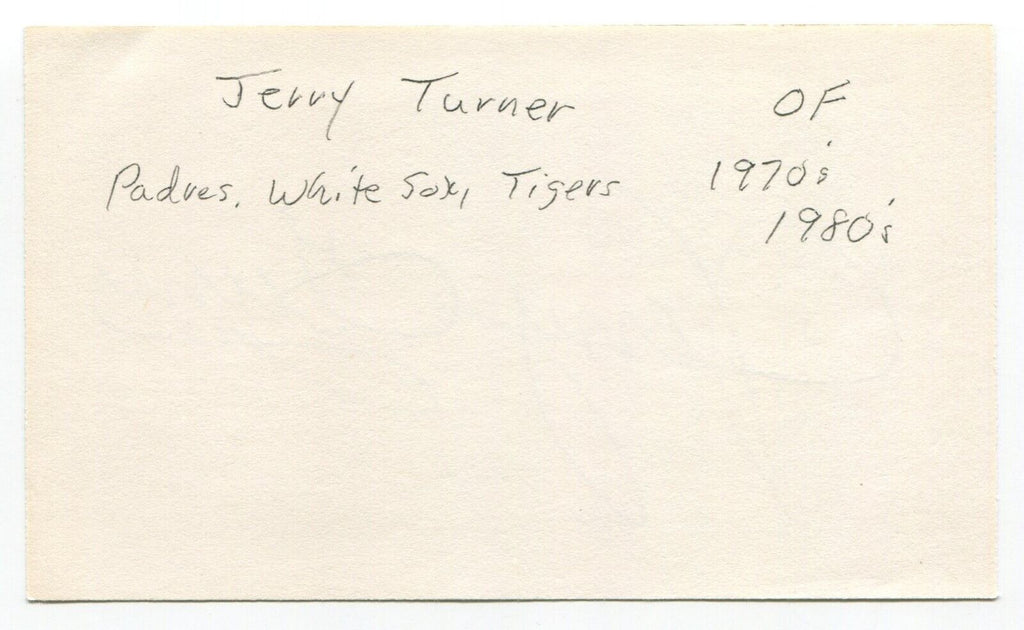 Jerry Turner OF
Padres, White Sox, Tigers 1970's
1980's